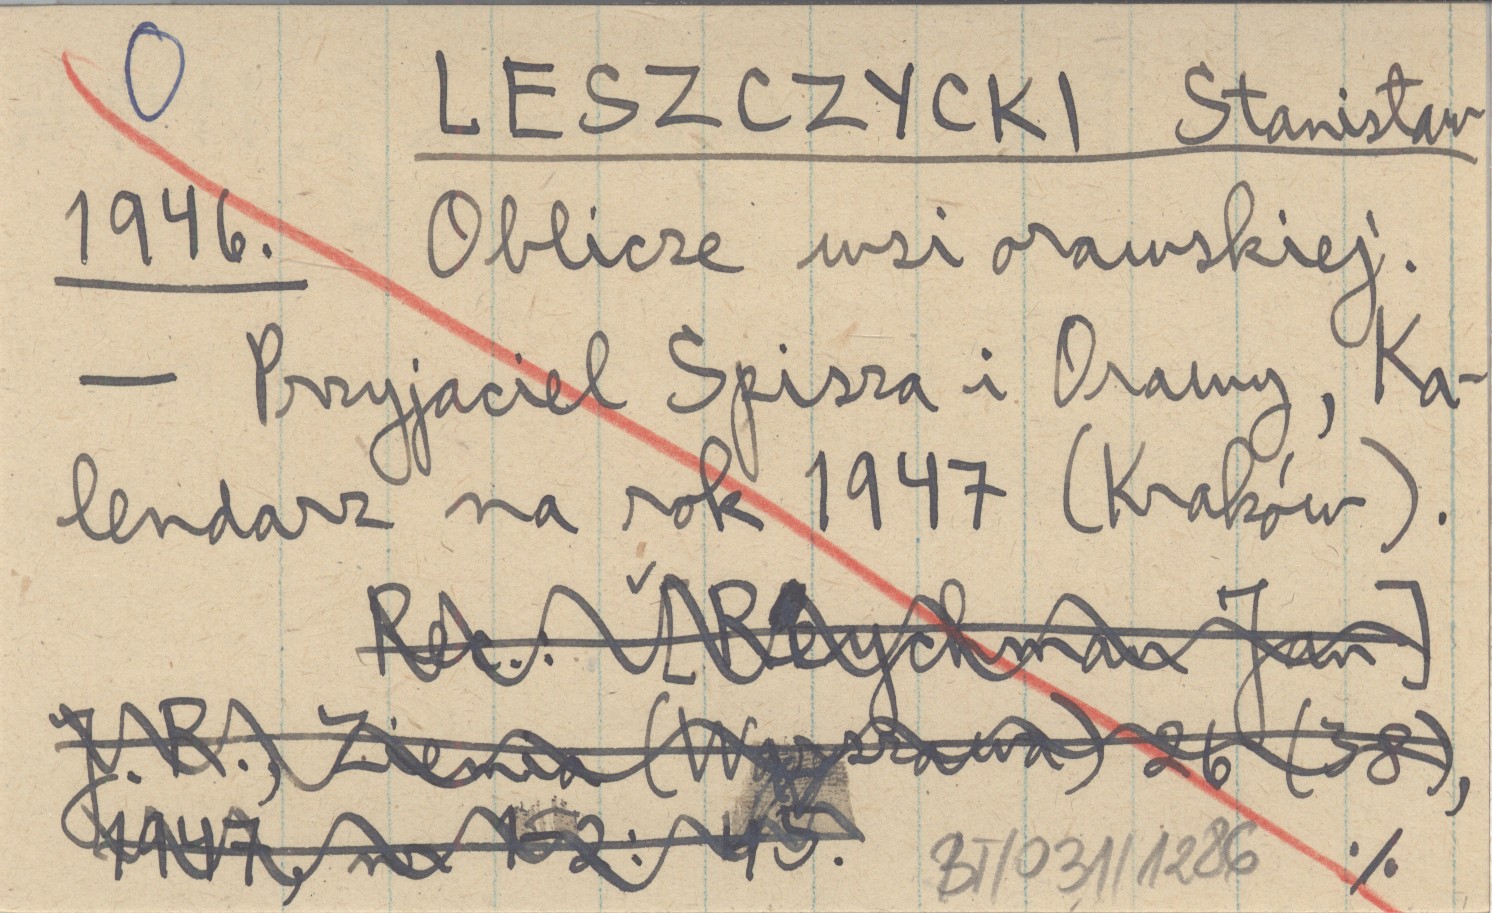 O
LESZCZYCKI Stanisław
1946. Oblicze wsi orawskiej.
— Przyjaciel Spisza i Orawy, Ka-
lendarz na rok 1947 (Kraków).
Rec.: [Reychman Jan]
J.R., Ziemia (Warszawa) 26 (38),
1947, nr 1-2: 45.
BT/031/1286
./.